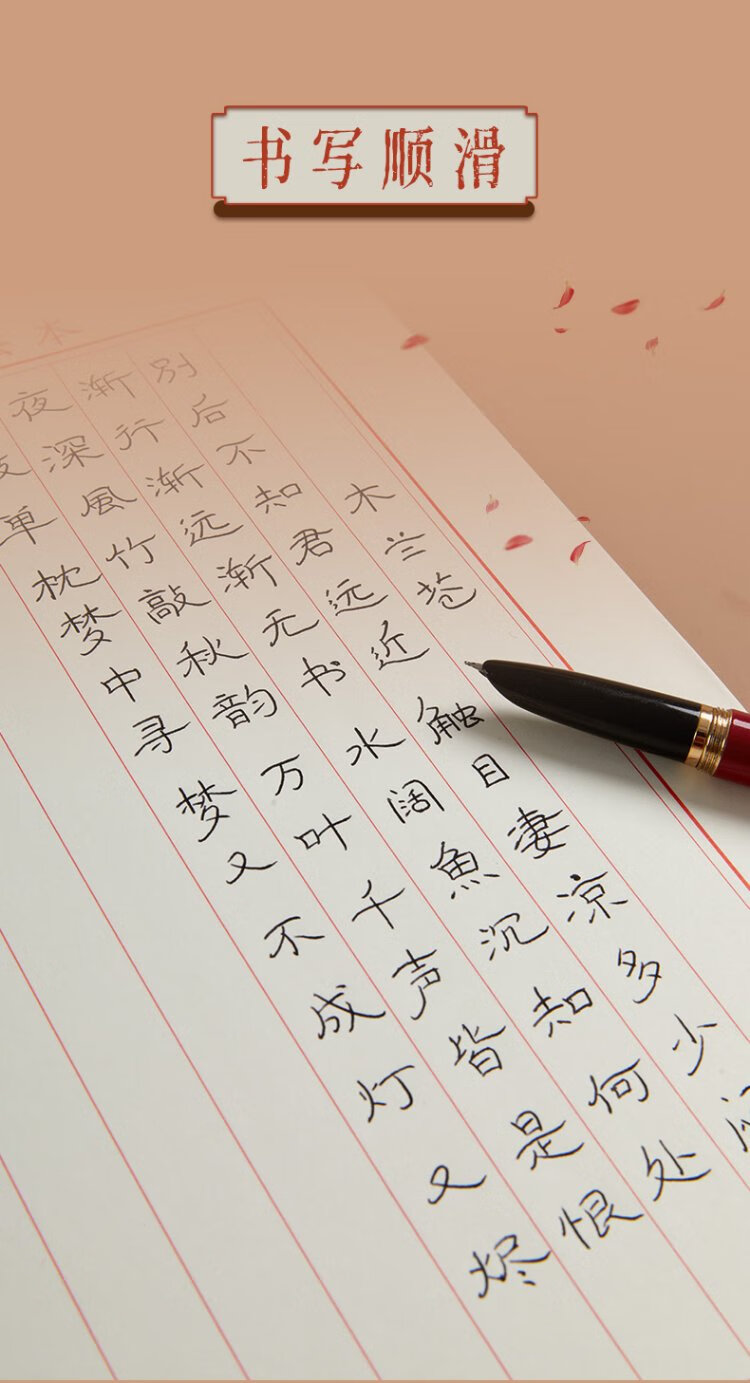 书写顺滑
木兰花
别后不知君远近 触目凄凉多少
渐行渐远渐无书 水阔魚沉知何处
夜深風竹敲秋韵 万叶千声皆是恨
单枕梦中寻 梦又不成灯又烬